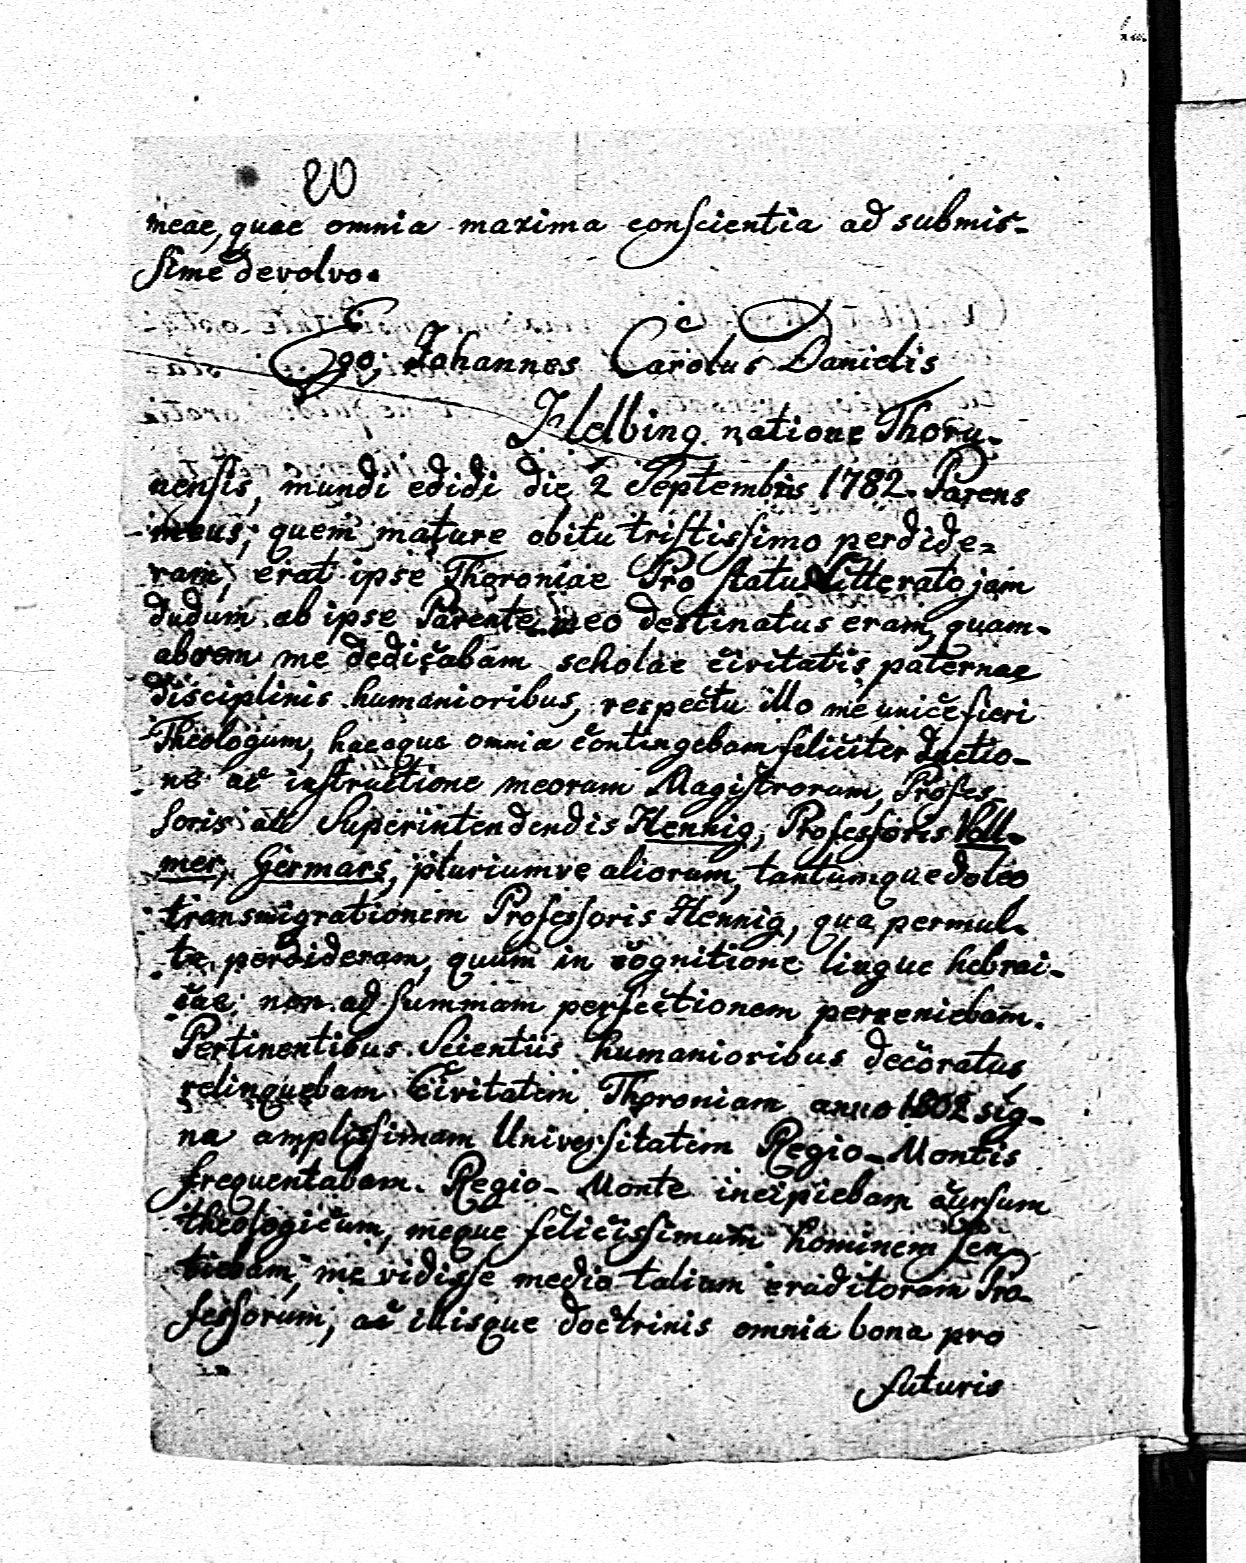 20
meae, quae omnia maxima conscientia ad submis-
sime devolvo.
Ego, Johannes Carolus Danielis
Helbing natione Thoru-
nensis, mundi edidi die 2 Septembris 1782. Parens
meus, quem mature obitu tristissimo perdide-
ram, erat ipse Thoroniae Pro statu Litterato jam
dudum ab ipse Parente meo destinatus eram, quam-
abrem me dedicabam scholae civitatis paternae
disciplinis humanioribus, respectu illo me unice fieri
Theologum, haecque omnia contingebam feliciter ductio-
ne ac instructione meorum Magistrorum, Profes-
soris ac Superintendendis Hennig, Professoris Voll-
mer, Germars, pluriumve aliorum, tantumque doleo
transmigrationem Professoris Hennig, qua permul-
ta perdideram, quum in cognitione lingue hebrai-
cae non ad summam perfectionem perveniebam.
Pertinentibus Scientiis humanioribus decoratus
relinquebam Civitatem Thoroniam anno 1802 sig-
na amplissimam Universitatem Regio-Montis
frequentabam. Regio-Monte incipiebam cursum
theologicum, meque felicissimum hominem sen-
tiebam, me vidisse medio talium eruditorum Pro-
fessorum, ac illisque doctrinis omnia bona pro
futuris